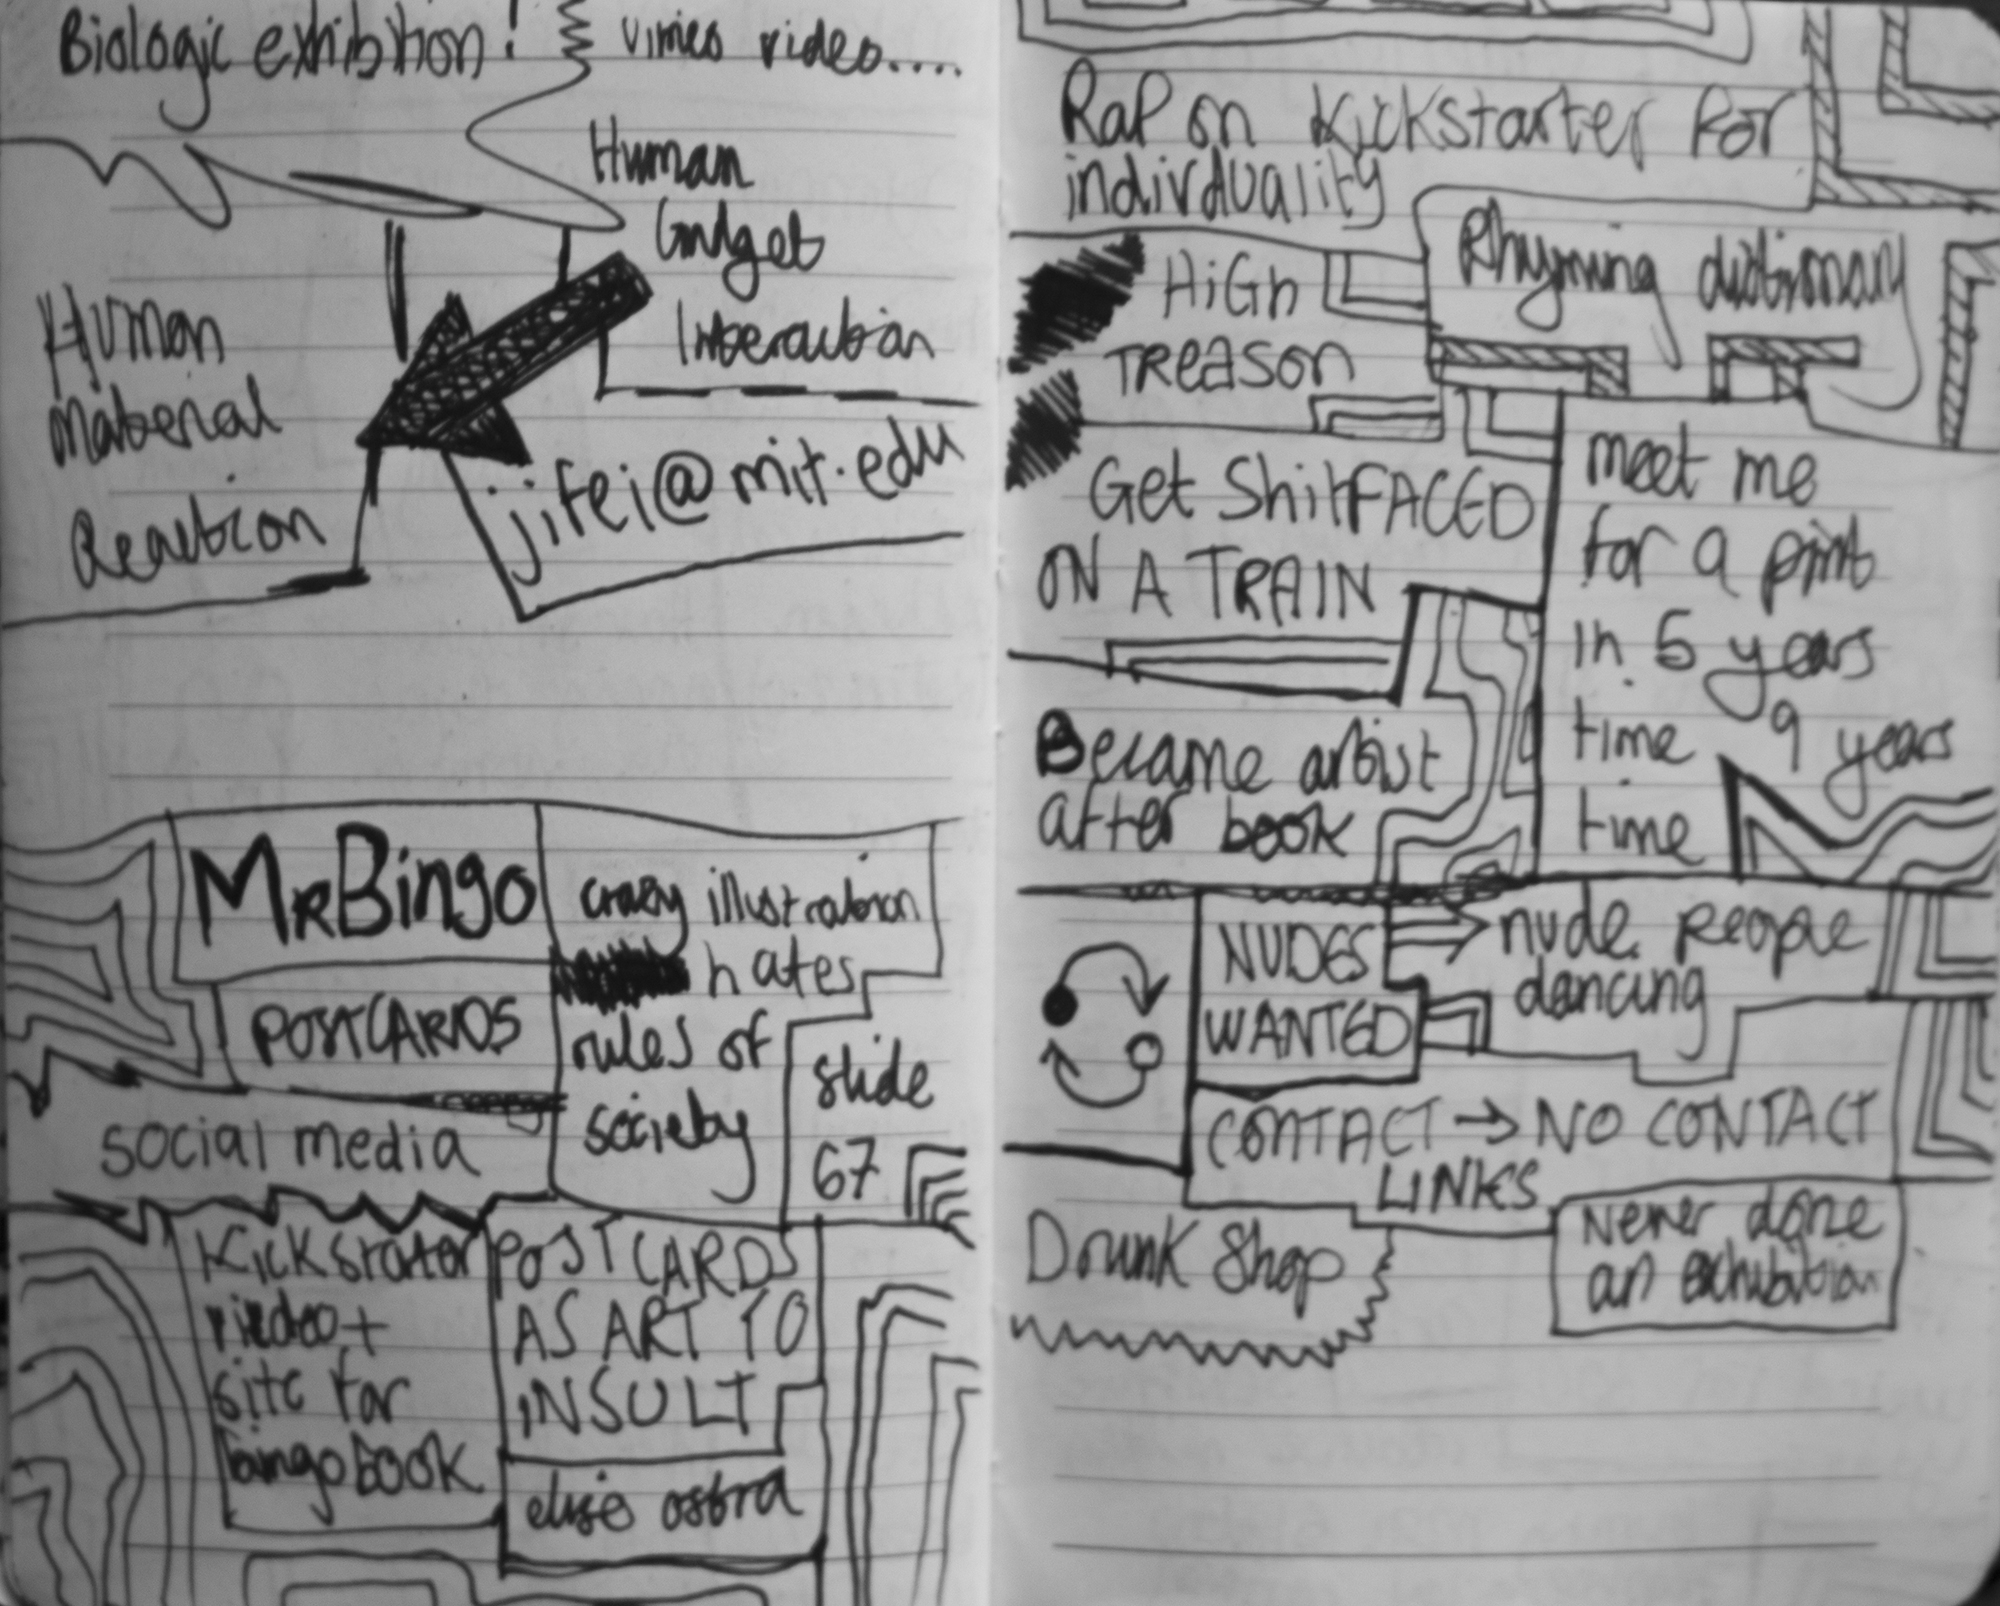 Biologic exhibition!
vimeo video....
Human
Gadget
Interaction
Human
Material
Reaction
jifei@mit.edu
MRBingo
POSTCARDS
social media
crazy illustration
hates
rules of
society
slide
67
Kickstarter
video +
site for
bingo book
POSTCARDS
AS ART TO
INSULT
Rap on Kickstarter for
indivduality
Rhyming dictionary
HiGh
TReason
Get ShitFACED
ON A TRAIN
meet me
for a pint
in 5 years
time 9 years
time
Became artist
after book
NUDES
WANTED
nude people
dancing
CONTACT → NO CONTACT
LINKS
Drunk Shop
Never done
an exhibition